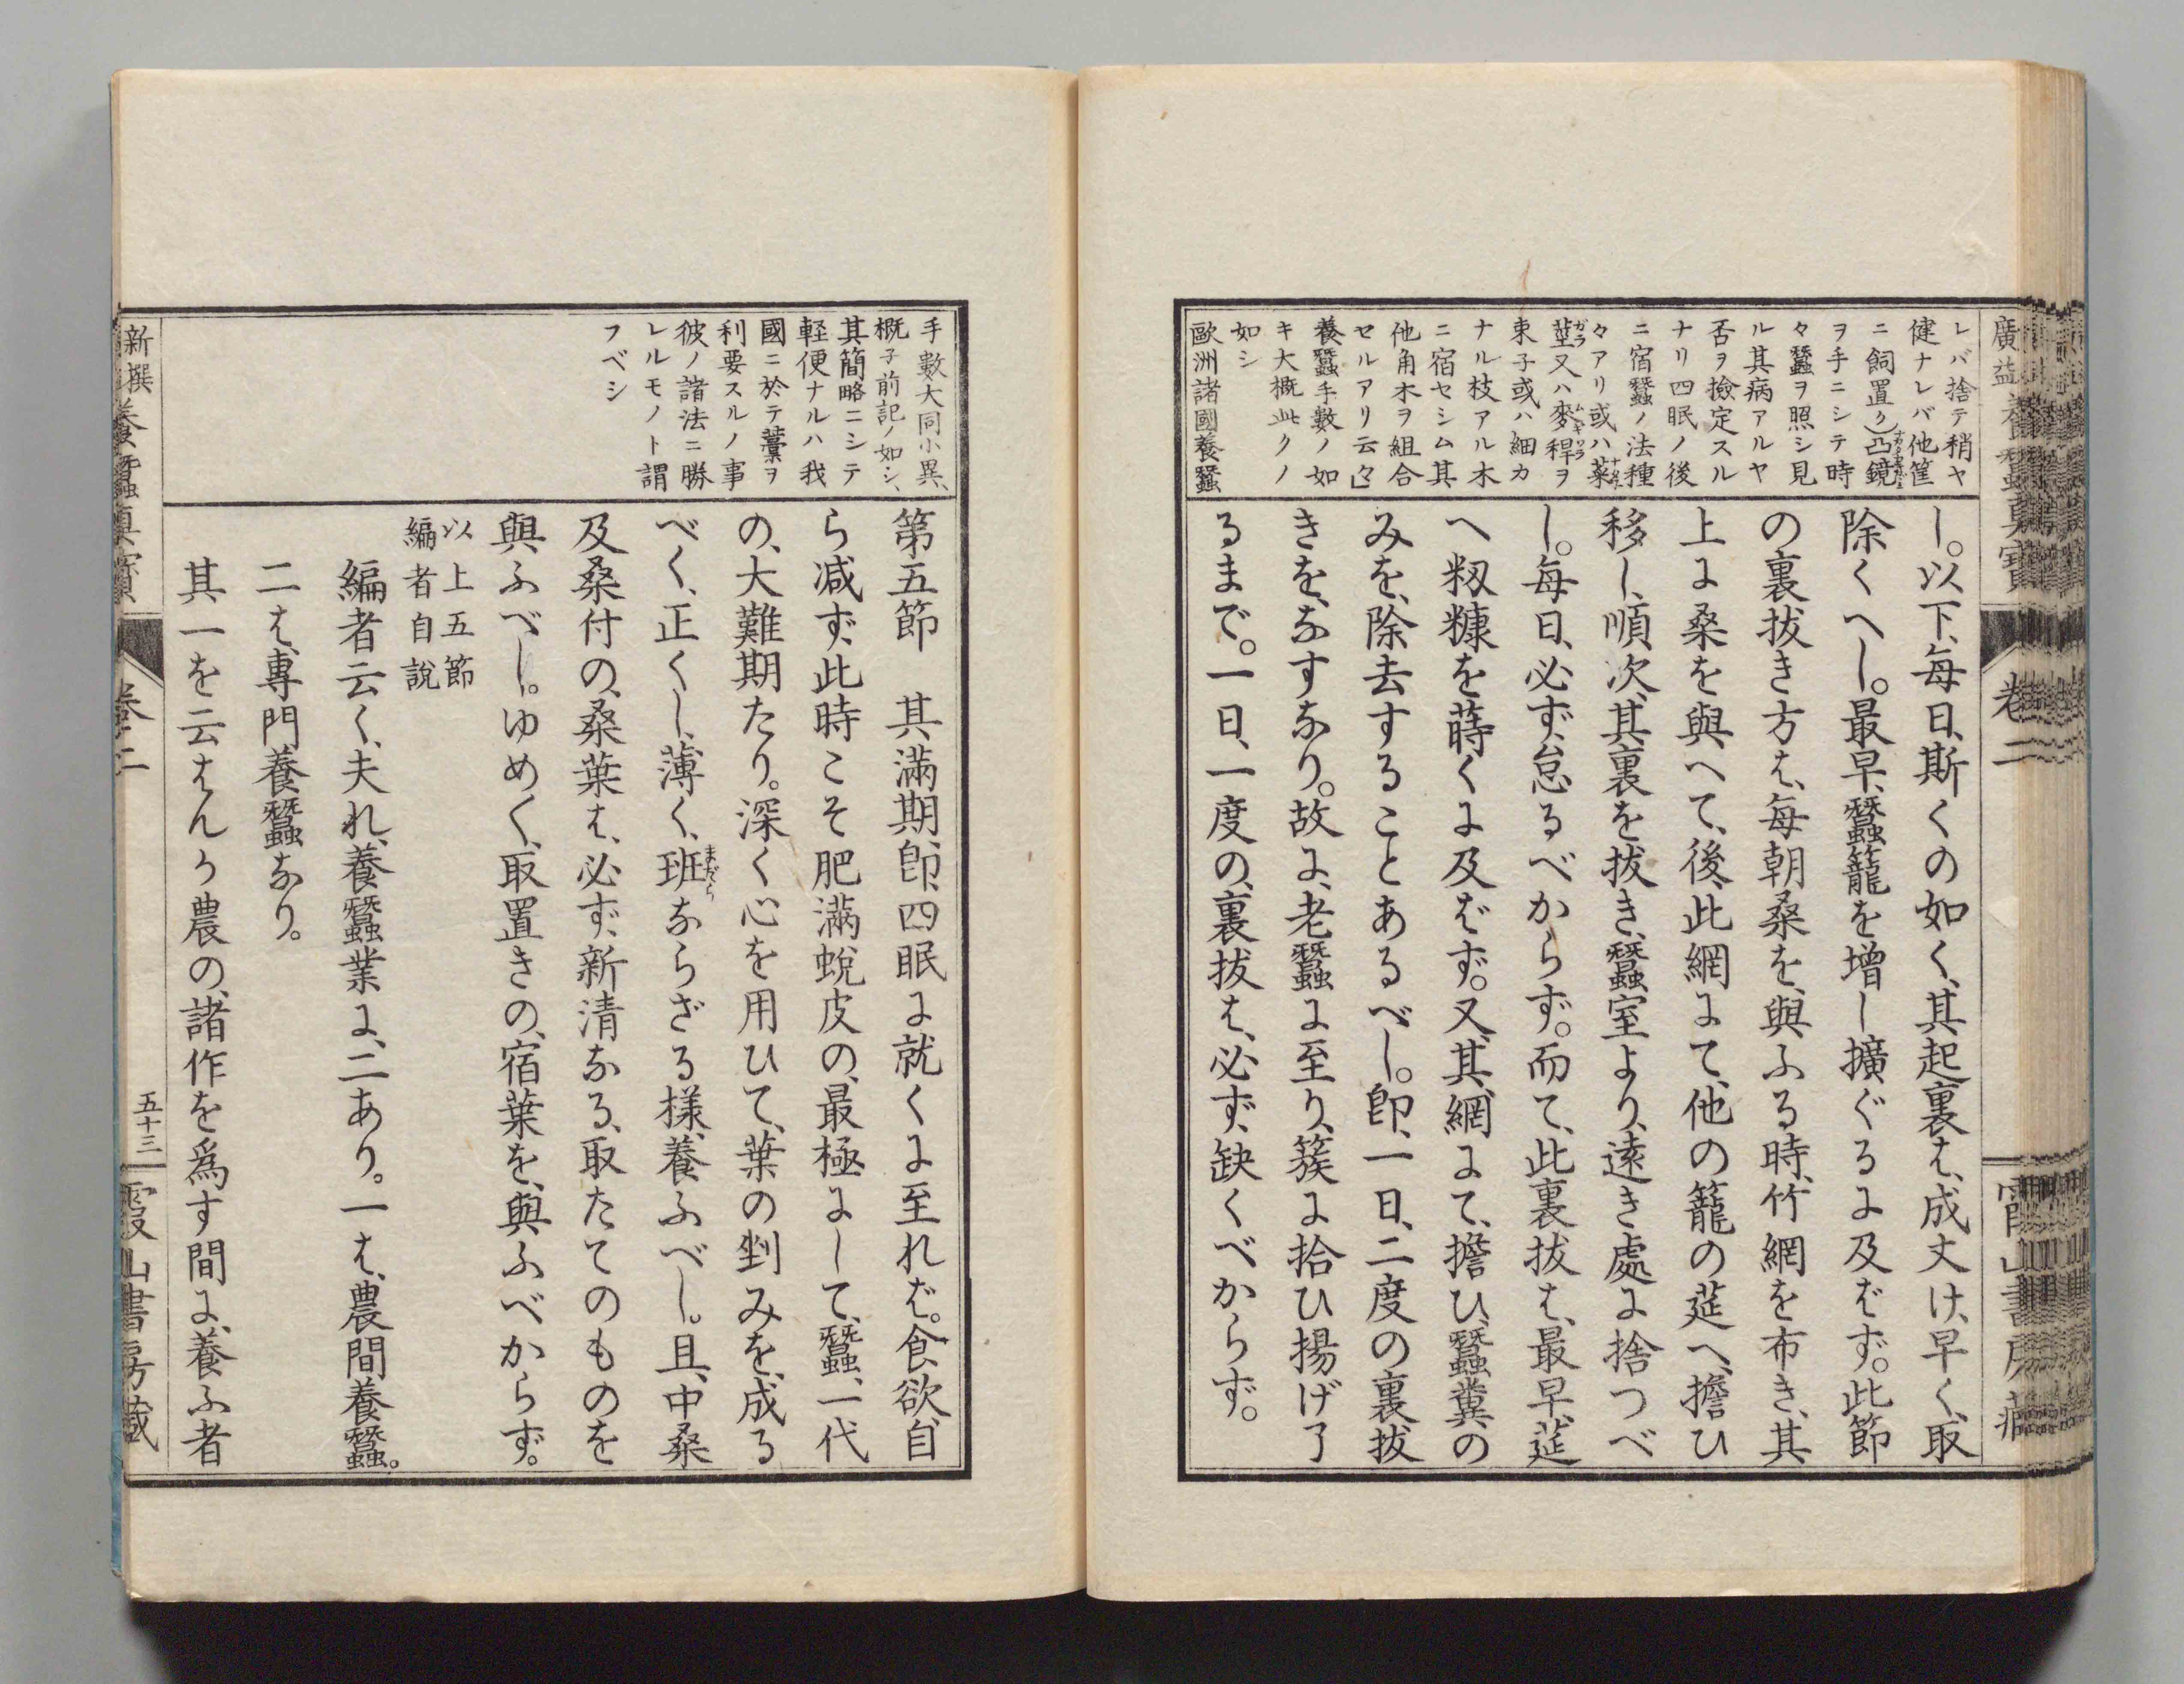 廣益養蠶眞寶
卷二
霞山書房藏
レバ捨テ稍ヤ
健ナレバ他筐
ニ飼置ク）凸鏡
ヲ手ニシテ時
々蠶ヲ照シ見
ル其病アルヤ
否ヲ撿定スル
ナリ四眠ノ後
ニ宿蠶ノ法種
々アリ或ハ菜
莖又ハ麥稈ヲ
束子或ハ細カ
ナル枝アル木
ニ宿セシム其
他角木ヲ組合
セルアリ云々」
養蠶手數ノ如
キ大概此クノ
如シ
歐洲諸國養蠶
し。以下、每日、斯くの如く、其起裏は、成丈け、早く、取
除くへし。最早、蠶籠を增し擴ぐるに及ばず。此節
の裏拔き方は、每朝桑を、與ふる時、竹網を布き、其
上に桑を與へて、後、此網にて、他の籠の莚へ、擔ひ
移し、順次、其裏を拔き、蠶室より、遠き處に捨つべ
し。每日、必ず、怠るべからず。而て、此裏拔は、最早、莚
へ籾糠を蒔くに及ばず。又、其、網にて、擔ひ、蠶糞の
みを、除去することあるべし。卽、一日、二度の裏拔
きを、なすなり。故に、老蠶に至り、簇に拾ひ揚げ了
るまで。一日、一度の、裏拔は、必ず、缺くべからず。
手數大同小異、
概子前記ノ如シ、
其簡略ニシテ
軽便ナルハ我
國ニ於テ藁ヲ
利要スルノ事
彼ノ諸法ニ勝
レルモノト謂
フベシ
第五節　其、滿期、卽、四眠に就くに至れば。食欲、自
ら減ず、此時こそ肥滿蛻皮の、最極にして、蠶、一代
の、大難期たり。深く心を用ひて、葉の剉みを、成る
べく、正くし、薄く、班ならざる樣、養ふべし。且、中桑
及桑付の、桑葉は、必ず、新淸なる、取たてのものを
與ふべし。ゆめく、取置きの、宿葉を、與ふべからず。
以上五節
編者自說
編者云く、夫れ、養蠶業に、二あり。一は、農間養蠶。
二は、專門養蠶なり。
其一を云はんか農の、諸作を爲す間に、養ふ者
新撰養蠶眞寶
卷二
五十三
霞山書房藏